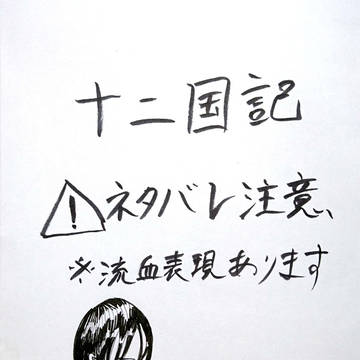 十二国記
⚠ネタバレ注意、
※流血表現あります